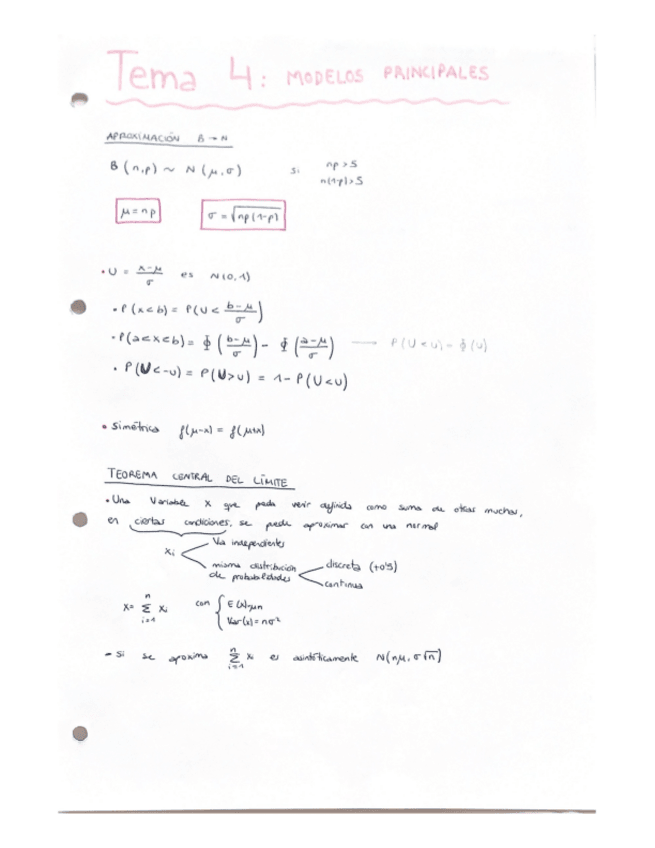 Tema 4: MODELOS PRINCIPALES
APROXIMACIÓN B → N
B(n,p) ~ N(μ,σ) si np > 5
n(1-p) > 5
μ = np σ = √np(1-p)
• U = x-μ/σ es N(0,1)
• P(x<b) = P(U < b-μ/σ)
• P(a<x<b) = ϕ(b-μ/σ) - ϕ(a-μ/σ) → P(U<u) = ϕ(u)
• P(U<-u) = P(U>u) = 1-P(U<u)
• Simétrica f(μ-x) = f(μ+x)
TEOREMA CENTRAL DEL LÍMITE
• Una Variable X que pueda venir definida como suma de otras muchas,
en ciertas condiciones, se puede aproximar con una normal
Xi
Va independientes
misma distribución de probabilidades
discreta (+0'5)
continua
X = Σ i=1 n Xi con { E(x)=μn
Var(x) = nσ²
- Si se aproxima Σ i=1 n Xi es asintóticamente N(nμ, σ√n)